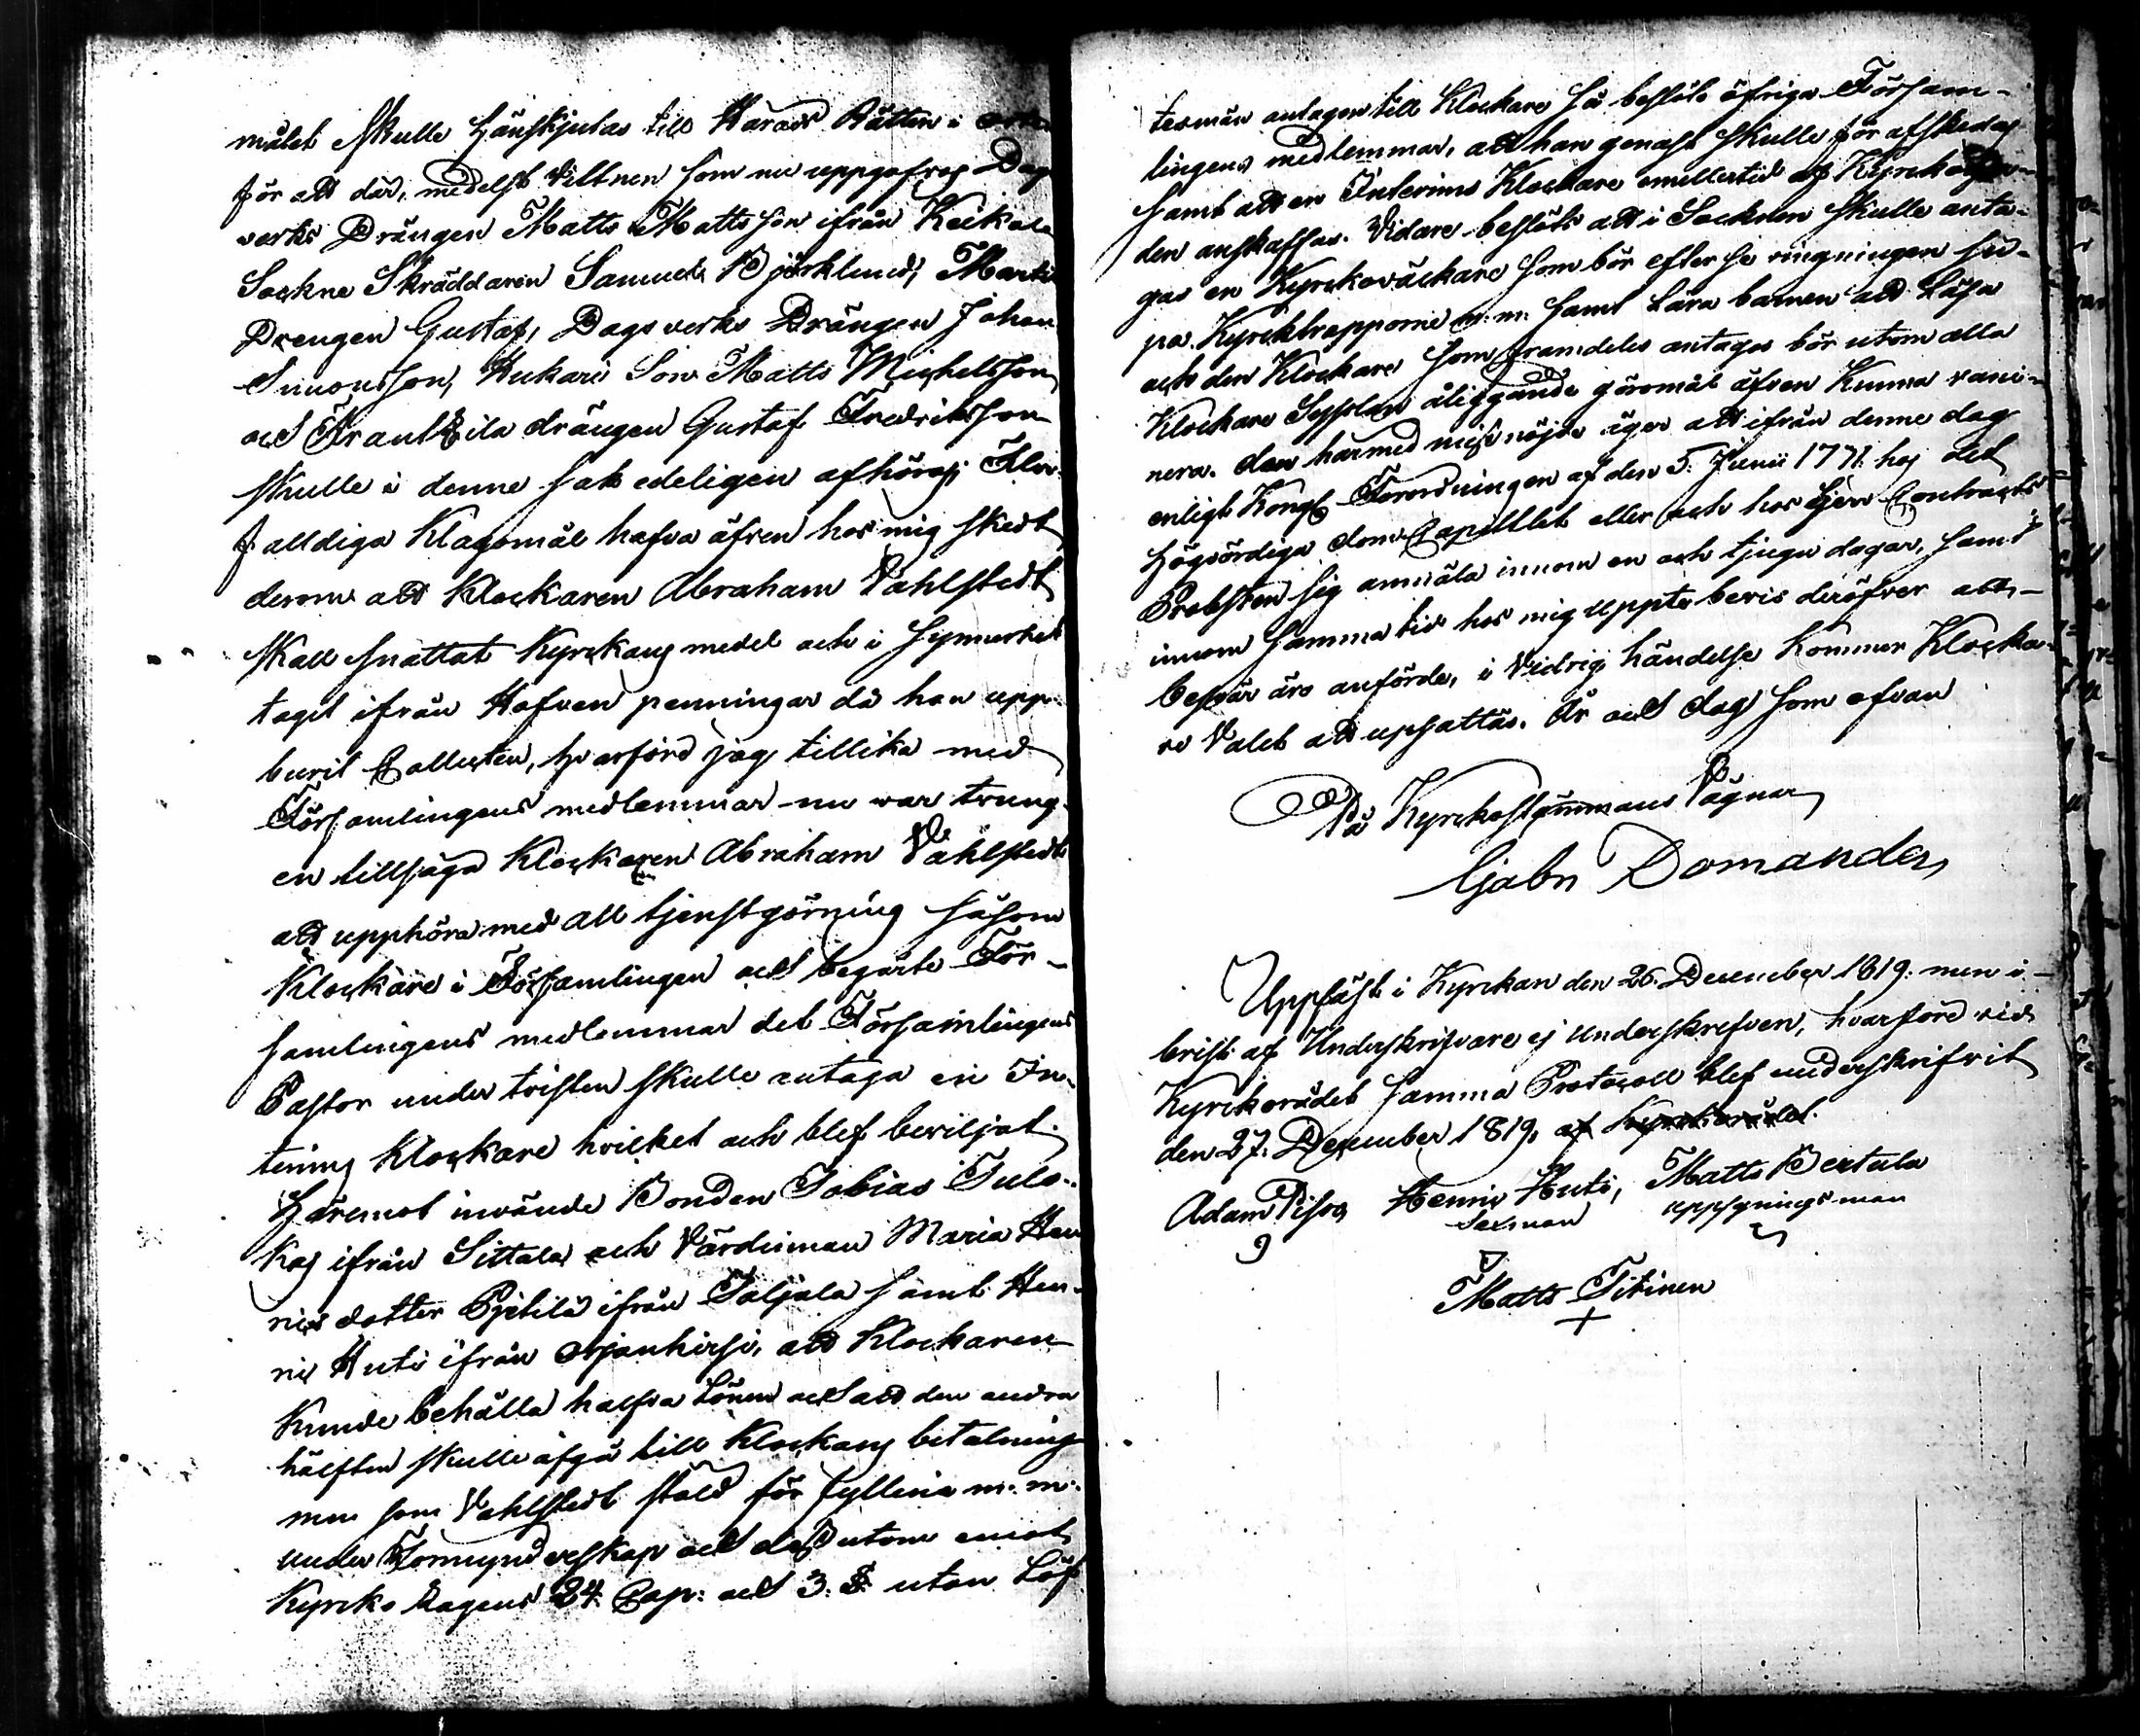 målet skulle hänskjutas till Härads Rätten i
för att där, medelst vittnen som nu uppgafves Dags
verks Drängen Matts Mattsson ifrån Keikala
Sockne Skräddaren Samuel Björklund,
Drengen Gustaf, Dagsverks Drängen Johan
Simonsson, Kukari Son Matts Michelsson
och drängen Gustaf Fredriksson
skulle i denne sak edeligen afhöras. Fler-
falldiga Klagomål hafva äfven hos mig skedt
derom att Klockaren Abraham Vahlstedt
skall snattat Kyrckans medel och i synnerhet
tagit ifrån Hafven penningar då han upp-
burit Collecten, hvarföre jag tillika med
Församlingens medlemmar nu var tvung-
en tillsäga Klockaren Abraham Vahlstedt
att upphöra med all tjenstgörning såsom
Klockare i Församlingen och begärte För-
samlingens medlemmar det Församlingens
Pastor under tvisten skulle antaga en In-
terims Klockare hvilket och blef beviljat.
Häremot invände Bonden Tobias Tulo-
kas ifrån Sittala och Värdinnan Maria Hen
rics dotter Pjetilä ifrån Taljala samt Hen-
ric Huti ifrån Orjanhirsi, att Klockaren
Kunde behålla halfva Lönen och att den andra
hälften skulle afgå till Klockans betalning
men som Vahlstedt ståld för fylleria m. m.
under Förmynderskap och dessutom emot
Kyrcko Lagens 24. Cap: och 3. § utan Löf
termän antagen till Klockare så beslöto öfrige Försam-
lingens medlemmar, att han genast skulle för afskedas
samt att en Interims Klockare emellertid af Kyrckoher-
den anskaffas. Vidare beslöts att i Socknen skulle anta-
gas en Kyrckoväckare som bör efter se ringningen su-
pa Kyrcktrapporne m: m: samt Lära barnen att Läsa
och den Klockare som framdeles antages bör utom alla
Klockare Sysslan åliggande göromål äfven Kunna vacci-
nera. den härmed missnöjde äger att ifrån denne dag
enligt Kongl Förordningen af den 5. Junii 1771. hos det
Högvördiga dom Capittlet eller och hos Herr Contracts
Probsten sig anmäla innom en och tjugu dagar, samt
innom samma tid hos mig uppte bevis deröfver att
besvär äro anförde, i vidrig händelse Kommer Klocka-
re Valet att upsättas. År och dag som ofvan
På Kyrckostämmans Vägnar
Gabr Domander
Uppläst i Kyrckan den 26. December 1819. men i
brist af Underskrifvare ej underskrefven, hvarföre vid
Kyrckorådet samma Protocoll blef underskrifvit
den 27. December 1819. af Kyrckorådet.
Adam Henric Huti, Matts Bertula
Sexman uppsyningsman
Matts Titinen